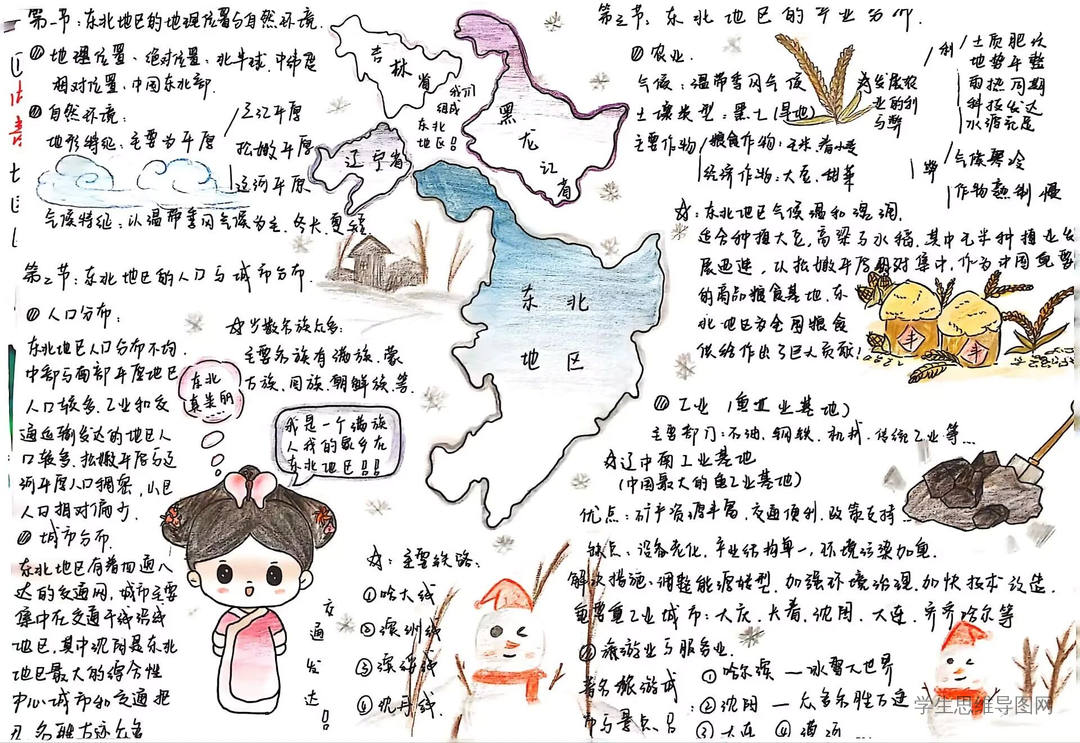 第一节:东北地区的地理位置与自然环境.
① 地理位置、绝对位置、北半球.中纬度
相对位置、中国东北部.
② 自然环境:
地形特征、主要为平原
三江平原
松嫩平原
辽河平原
气候特征:以温带季风气候为主.冬长夏短
第二节:东北地区的人口与城市分布.
① 人口分布:
东北地区人口分布不均.
中部与南部平原地区
人口较多.工业和交
通运输发达的地区人
口较多.松嫩平原与辽
河平原人口稠密,山区
人口相对偏少.
② 城市分布.
东北地区有着四通八
达的交通网.城市主要
集中在交通干线沿线
地区,其中沈阳是东北
地区最大的综合性
中心城市和交通枢
少数名族众多:
主要名族有满族、蒙
古族、回族 朝鲜族等.
东北
真美丽
我是一个满族
人我的家乡在
东北地区!!!
交通发达!!
主要铁路:
①哈大线
②滨洲线
③滨绥线
④沈丹线.
吉林省
我们
组成
东北
地区!!
黑龙江省
辽宁省
东北
地区
第三节:东北地区的产业分布.
① 农业.
气候:温带季风气候
土壤类型:黑土(旱地)
主要作物
粮食作物:玉米 春小麦
经济作物:大豆、甜菜
为发展农
业的利
与弊
利
土质肥沃
地势平整
雨热同期
科技发达
水源充足
弊
气候寒冷
作物熟制慢
:东北地区气候温和湿润.
适合种植大豆,高粱与水稻.其中玉米种植业发
展迅速,以松嫩平原相对集中,作为中国重要
的商品粮食基地、东
北地区为全国粮食
供给作出了巨大贡献!
丰
丰
① 工业(重工业基地)
主要部门:石油、钢铁、机械、传统工业等...
辽中南工业基地
(中国最大的重工业基地)
优点:矿产资源丰富、交通便利、政策支持...
缺点、设备老化、产业结构单一、环境污染加重.
解决措施、调整能源转型,加强环境治理.加快技术改造.
重要重工业城市:大庆、长春、沈阳、大连、齐齐哈尔等
② 旅游业与服务业.
著名旅游城
市与景点!!:
①哈尔滨 — 冰雪大世界
②沈阳 — 众多名胜古迹
③大连 ④漠河 ...
学生思维导图网